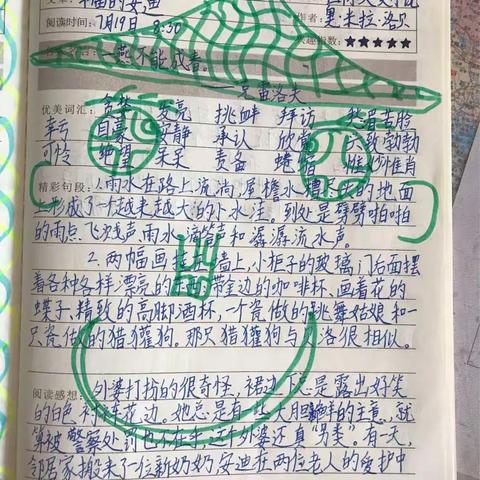 幸福的安迪
阅读时间：7月19日 8:30
里·米拉·洛贝
趣指数：★★★★★
一燕不能成春。
——克雷洛夫
优美词汇：贫 发亮 挑衅 拜访 愁眉苦脸
幸云 自豪 安静 承认 欣赏
可怜 绝望 呆呆 责备 蜷缩 惟妙惟肖
精彩句段：1.雨水在路上流淌，屋檐水槽的地面
上形成了一个越来越大的小水洼。到处是劈劈啪啪
的雨点飞溅声、雨水滴答声和潺潺流水声。
2.两幅画挂在墙上，小柜子的玻璃门后面摆
着各种各样漂亮的东西：带金边的咖啡杯、画着花的
蝶子、精致的高脚酒杯，一个瓷做的跳舞姑娘和一
只瓷做的猎獾狗。那只猎獾狗与贝洛很相似。
阅读感想：外婆打扮的很奇怪，裙边下总是露出好笑
的白色衬裤花边。她总是有一些大胆新鲜的主意，就
算被警察处罚也不在乎，这个外婆还真“另类”。有一天，
邻居家搬来了一位新奶奶，安迪在两位老人的爱护中